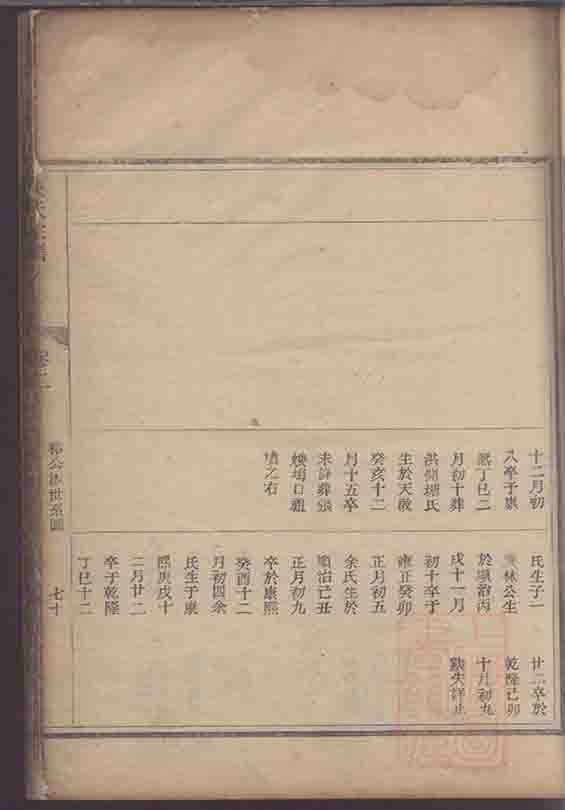 十二月初
八卒于康
熙丁巳二
月初十葬
洪側塘氏
生於天啟
癸亥十二
月十五卒
未詳葬張
墳之右
氏生子一
林公生
於順治丙
戌十一月
初十卒于
雍正癸卯
正月初五
余氏生於
順治己丑
正月初九
卒於康熙
癸酉十二
月初四余
氏生于康
熙庚戌十
二月廿二
卒于乾隆
丁巳十二
廿二卒於
乾隆己卯
十月初九
歿失詳止
公派世系圖
七十